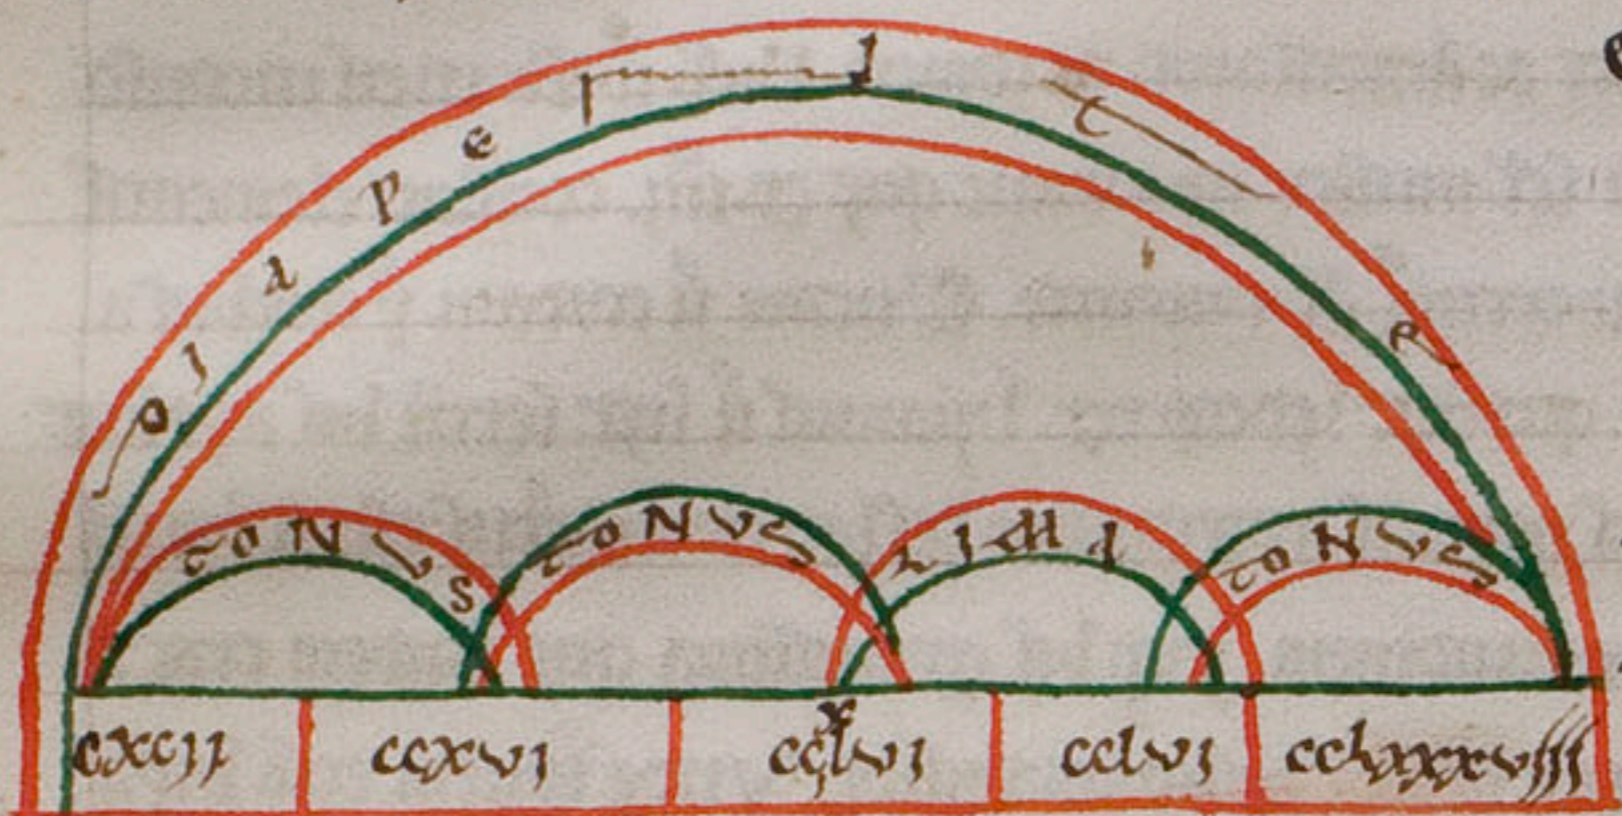 diapeNte
toNus toNus LiMa toNus
cxcii ccxvi ccxlvi cclvi cclxxxviii